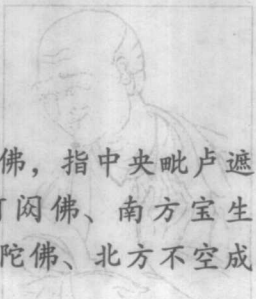 佛，指中央毗卢遮
閦佛、南方宝生
陀佛、北方不空成